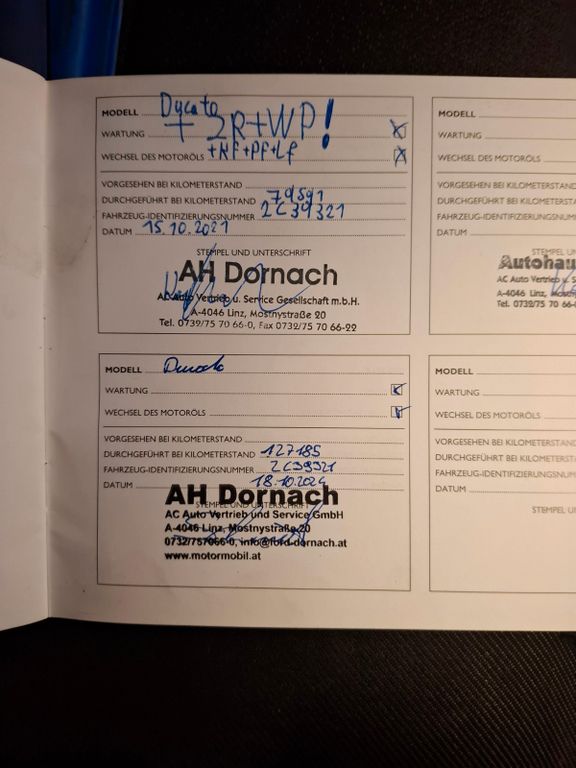 MODELL Ducato
+ ZR+WP!
WARTUNG
+Kf+Pf+Lf
WECHSEL DES MOTORÖLS
VORGESEHEN BEI KILOMETERSTAND
DURCHGEFÜHRT BEI KILOMETERSTAND 79591
FAHRZEUG-IDENTIFIZIERUNGSNUMMER 2C39321
DATUM 15.10.2021
STEMPEL UND UNTERSCHRIFT
AH Dornach
AC Auto Vertrieb u. Service Gesellschaft m.b.H.
A-4046 Linz, Mostnystraße 20
Tel. 0732/75 70 66-0, Fax 0732/75 70 66-22
MODELL Ducato
WARTUNG
WECHSEL DES MOTORÖLS
VORGESEHEN BEI KILOMETERSTAND
DURCHGEFÜHRT BEI KILOMETERSTAND 127185
FAHRZEUG-IDENTIFIZIERUNGSNUMMER 2C39321
DATUM 18.10.2024
AH Dornach
STEMPEL UND UNTERSCHRIFT
AC Auto Vertrieb und Service GmbH
A-4046 Linz, Mostnystraße 20
0732/757066-0, info@ford-dornach.at
www.motormobil.at
MODELL
WARTUNG
WECHSEL DES MOTORÖLS
VORGESEHEN BEI KILOMETERSTAND
DURCHGEFÜHRT BEI KILOMETERSTA
FAHRZEUG-IDENTIFIZIERUNGSNUM
DATUM
STEMPEL U
Autohau
AC Auto Vertrieb u.
A-4046 Linz, Mos
Tel. 0732/75 70 66-
MODELL
WARTUNG
WECHSEL DES MOTORÖLS
VORGESEHEN BEI KILOMETERSTAND
DURCHGEFÜHRT BEI KILOMETERSTA
FAHRZEUG-IDENTIFIZIERUNGSNUM
DATUM
STEMPEL UN